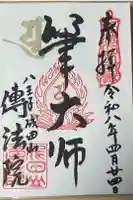 奉拝
令和八年四月廿四日
筆大師
八王子成田山
傳法院